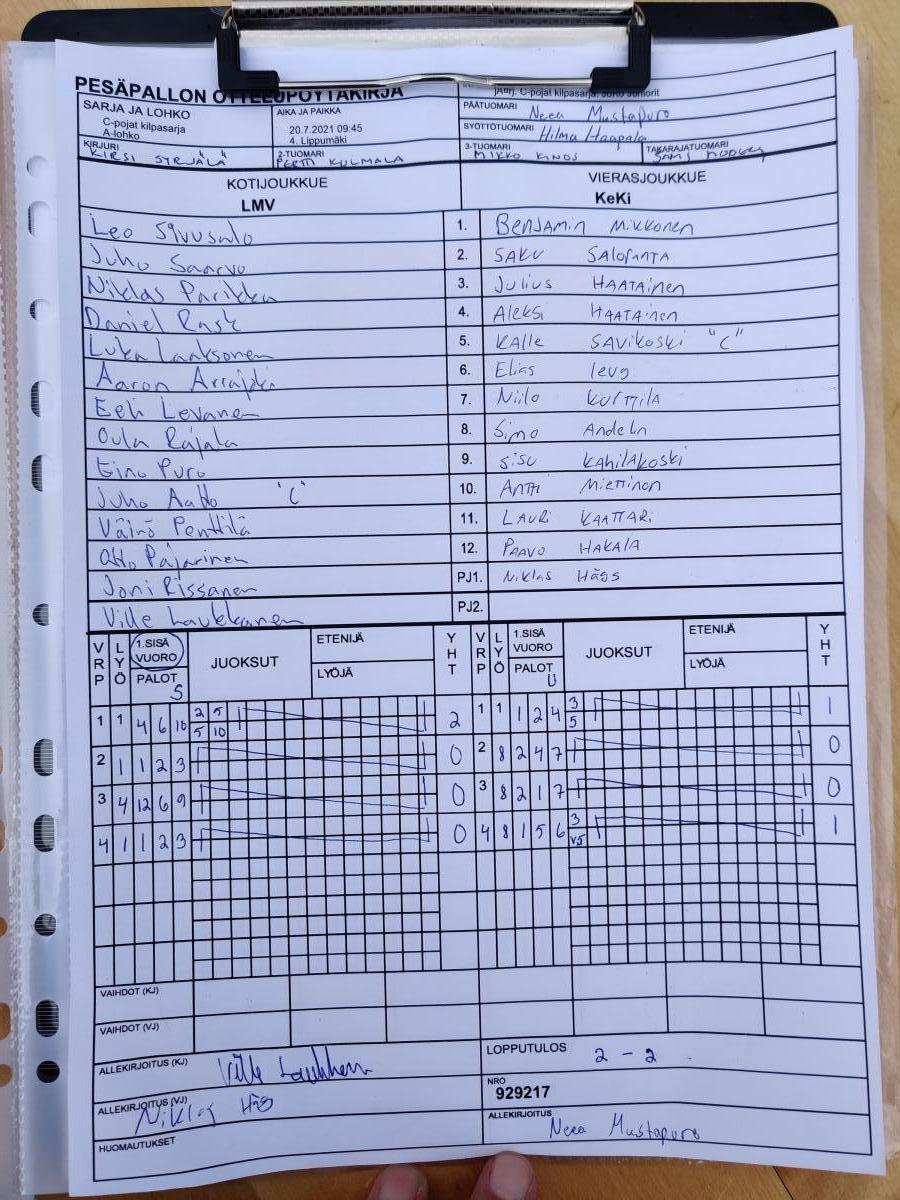 PESÄPALLON OTTELUPÖYTÄKIRJA
SARJA JA LOHKO
C-pojat kilpasarja
A-lohko
AIKA JA PAIKKA
20.7.2021 09:45
4. Lippumäki
C-pojat kilpasarja,
PÄÄTUOMARI Neea Mustapuro
SYÖTTÖTUOMARI Hilma Haapala
KIRJURI KIRSI SYRJÄLÄ
2-TUOMARI PERTTI KULMALA
3-TUOMARI MIKKO KINOS
TAKARAJATUOMARI
KOTIJOUKKUE VIERASJOUKKUE
LMV KeKi
Leo Sivusalo 1. BENJAMIN MIKKONEN
Juho Saarvo 2. SAKU SALORANTA
Niklas Parikka 3. JULIUS HAATAINEN
Daniel Rask 4. ALEKSI HAATAINEN
Luka Laaksonen 5. KALLE SAVIKOSKI "C"
Aaron 6. Elias
Eeli Levänen 7. Niilo KURTTILA
Oula Rajala 8. Simo Andelin
Eino Puro 9. SISU KAHILAKOSKI
Juho Aalto "C" 10. ANTTI MIETTINEN
Väinö Penttilä 11. LAURI KAATTARI
Otto Pajarinen 12. PAAVO HAKALA
Joni Rissanen PJ1. NIKLAS HÄGS
Ville Laukkanen PJ2.
VRP LYÖ 1.SISÄ VUORO PALOT S JUOKSUT ETENIJÄ LYÖJÄ YHT VRP LYÖ 1.SISÄ VUORO PALOT U JUOKSUT ETENIJÄ LYÖJÄ YHT
1 1 4 6 10 2/5 5/10 2 1 1 1 2 4 3/5 1
2 1 1 2 3 0 2 8 2 4 7 0
3 4 12 6 9 0 3 8 2 1 7 0
4 1 1 2 3 0 4 8 1 5 6 3/V5 1
VAIHDOT (KJ)
VAIHDOT (VJ)
ALLEKIRJOITUS (KJ) Ville Laukkanen
LOPPUTULOS 2 - 2
ALLEKIRJOITUS (VJ) Niklas Hägs
NRO
929217
HUOMAUTUKSET
ALLEKIRJOITUS Neea Mustapuro